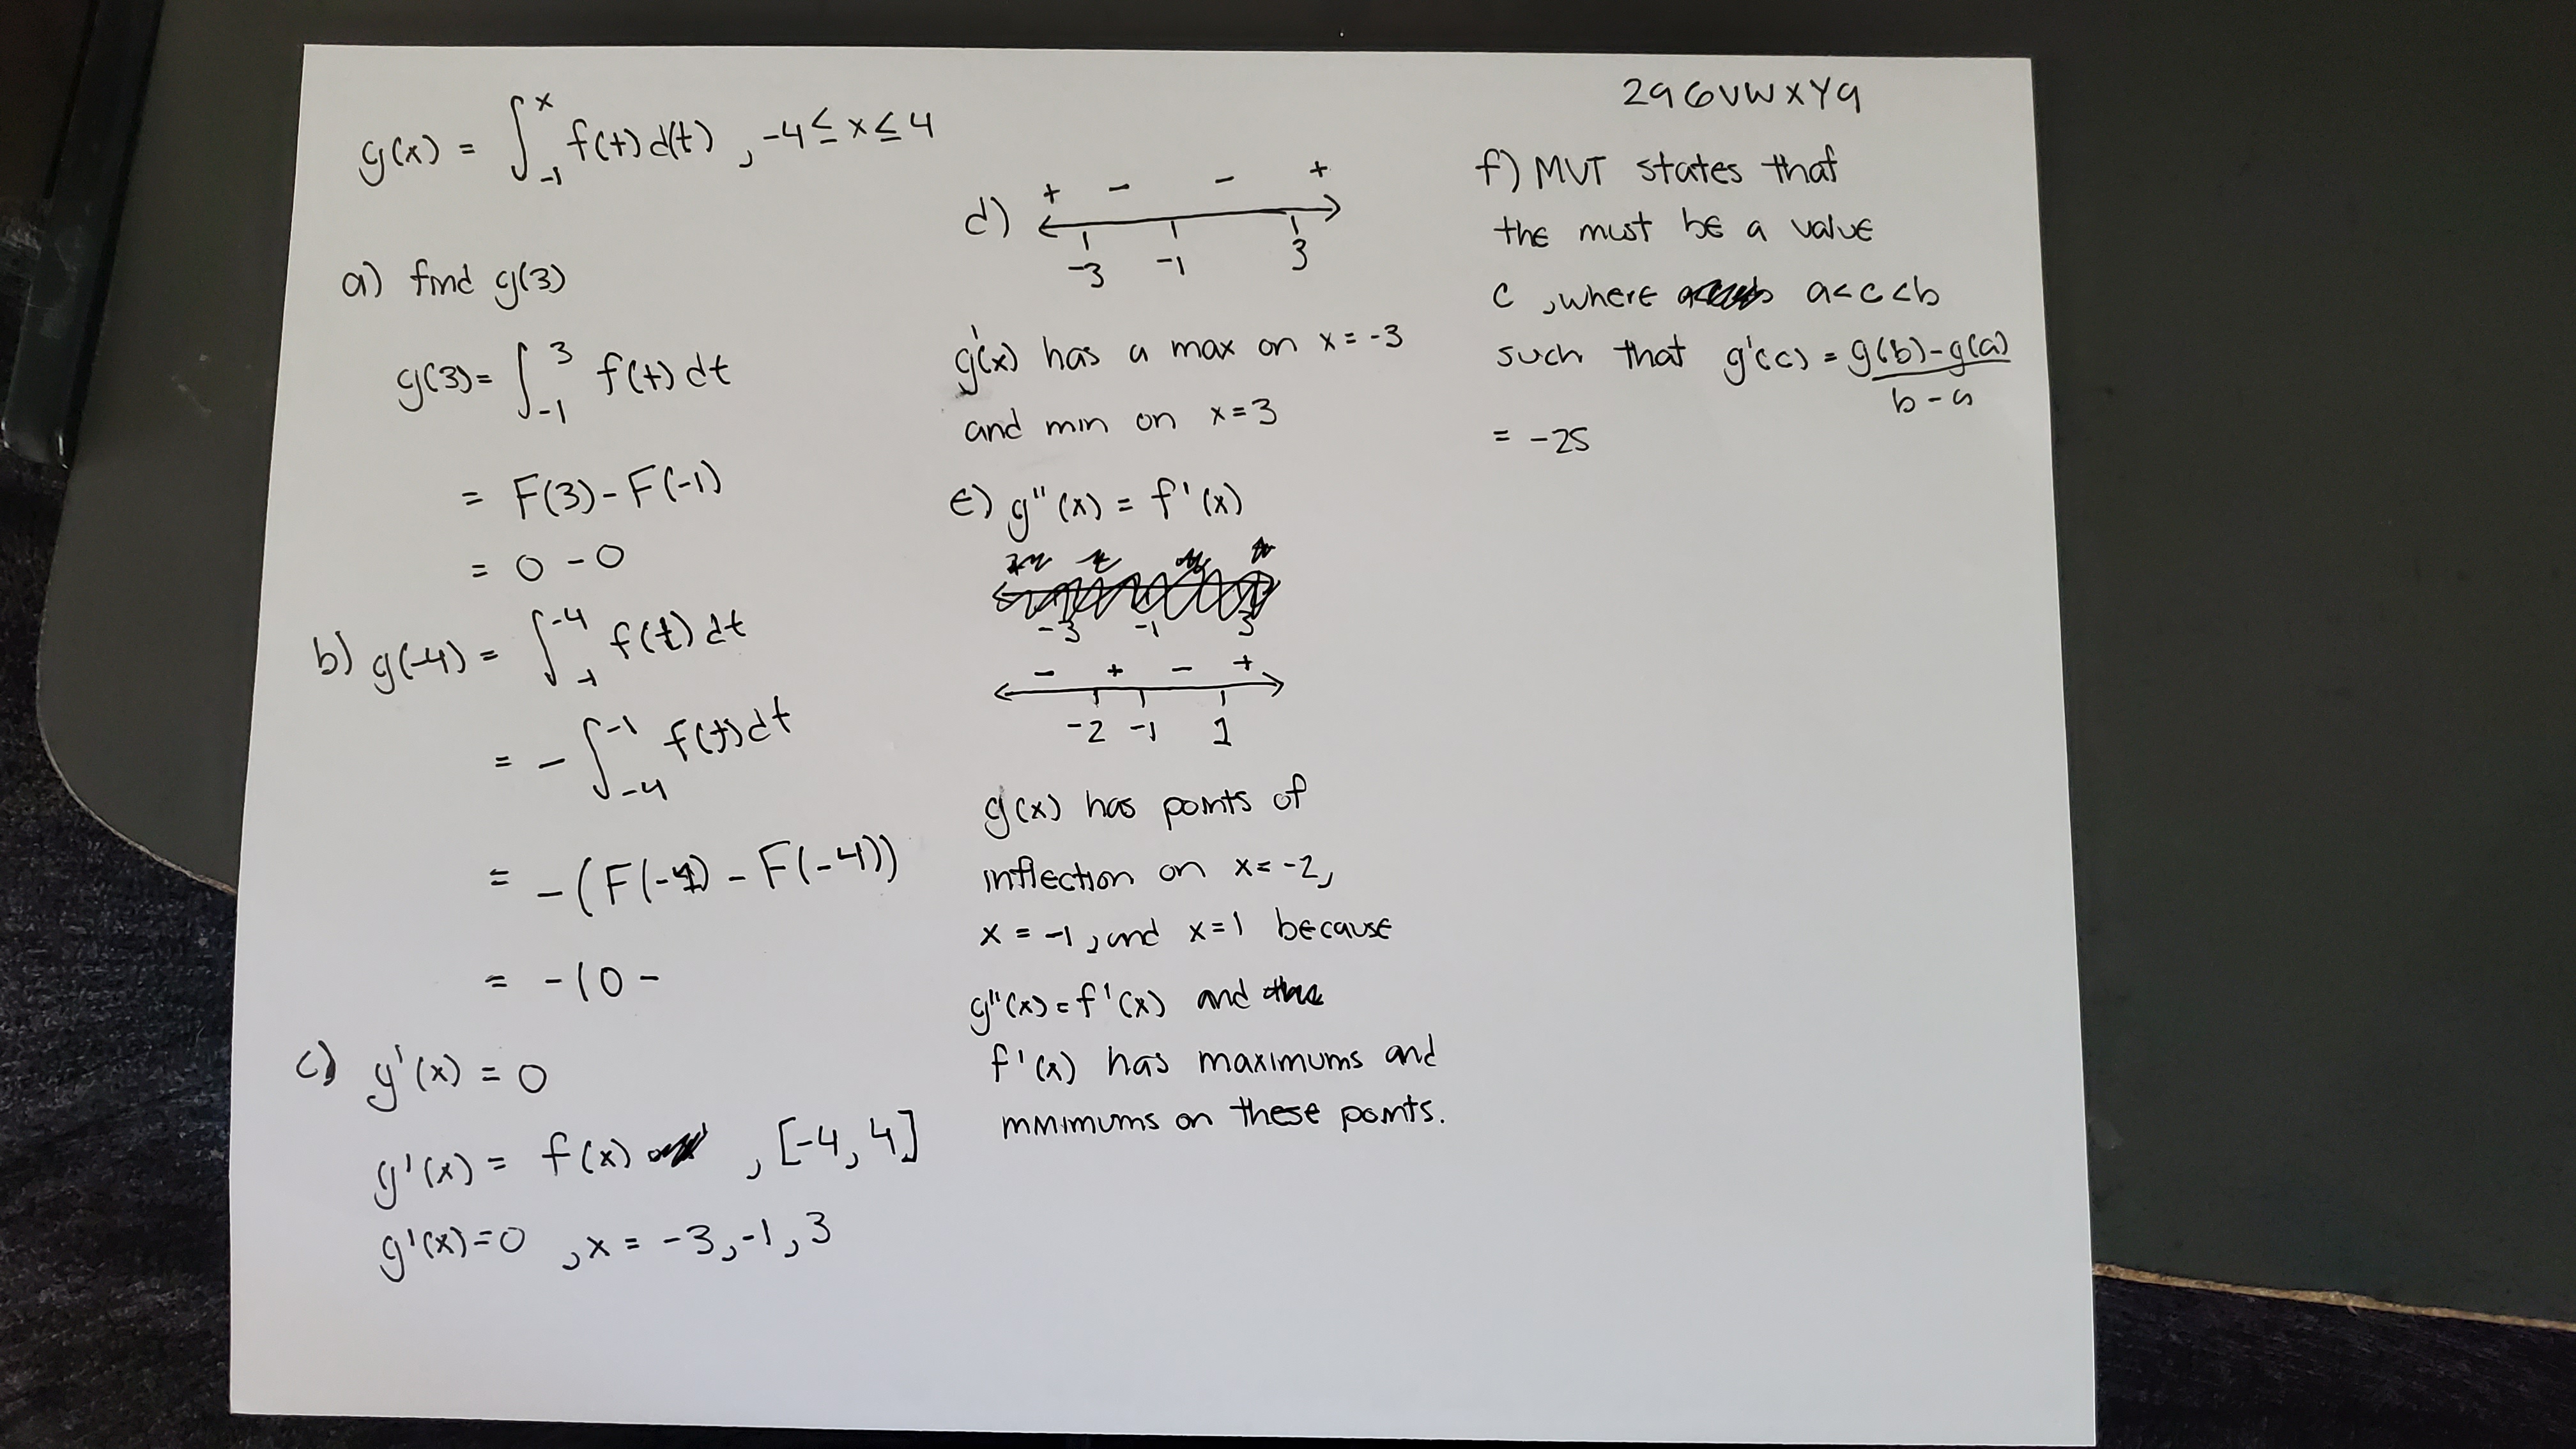 g(x) = ∫_{-1}^{x} f(t) d(t) , -4 ≤ x ≤ 4
a) find g(3)
g(3) = ∫_{-1}^{3} f(t) dt
= F(3) - F(-1)
= 0 - 0
b) g(-4) = ∫_{-1}^{-4} f(t) dt
= - ∫_{-4}^{-1} f(t) dt
= -(F(-1) - F(-4))
= -10 -
c) g'(x) = 0
g'(x) = f(x) , [-4, 4]
g'(x) = 0 , x = -3, -1, 3
d) + - - +
-3 -1 3
g'(x) has a max on x = -3
and min on x = 3
e) g''(x) = f'(x)
-3 -1 3
- + - +
-2 -1 1
g(x) has points of
inflection on x = -2,
x = -1, and x = 1 because
g''(x) = f'(x) and
f'(x) has maximums and
mnimums on these points.
296VWXY9
f) MVT states that
the must be a value
c , where a<c<b
such that g'(c) = g(b)-g(a)
b - a
= -25